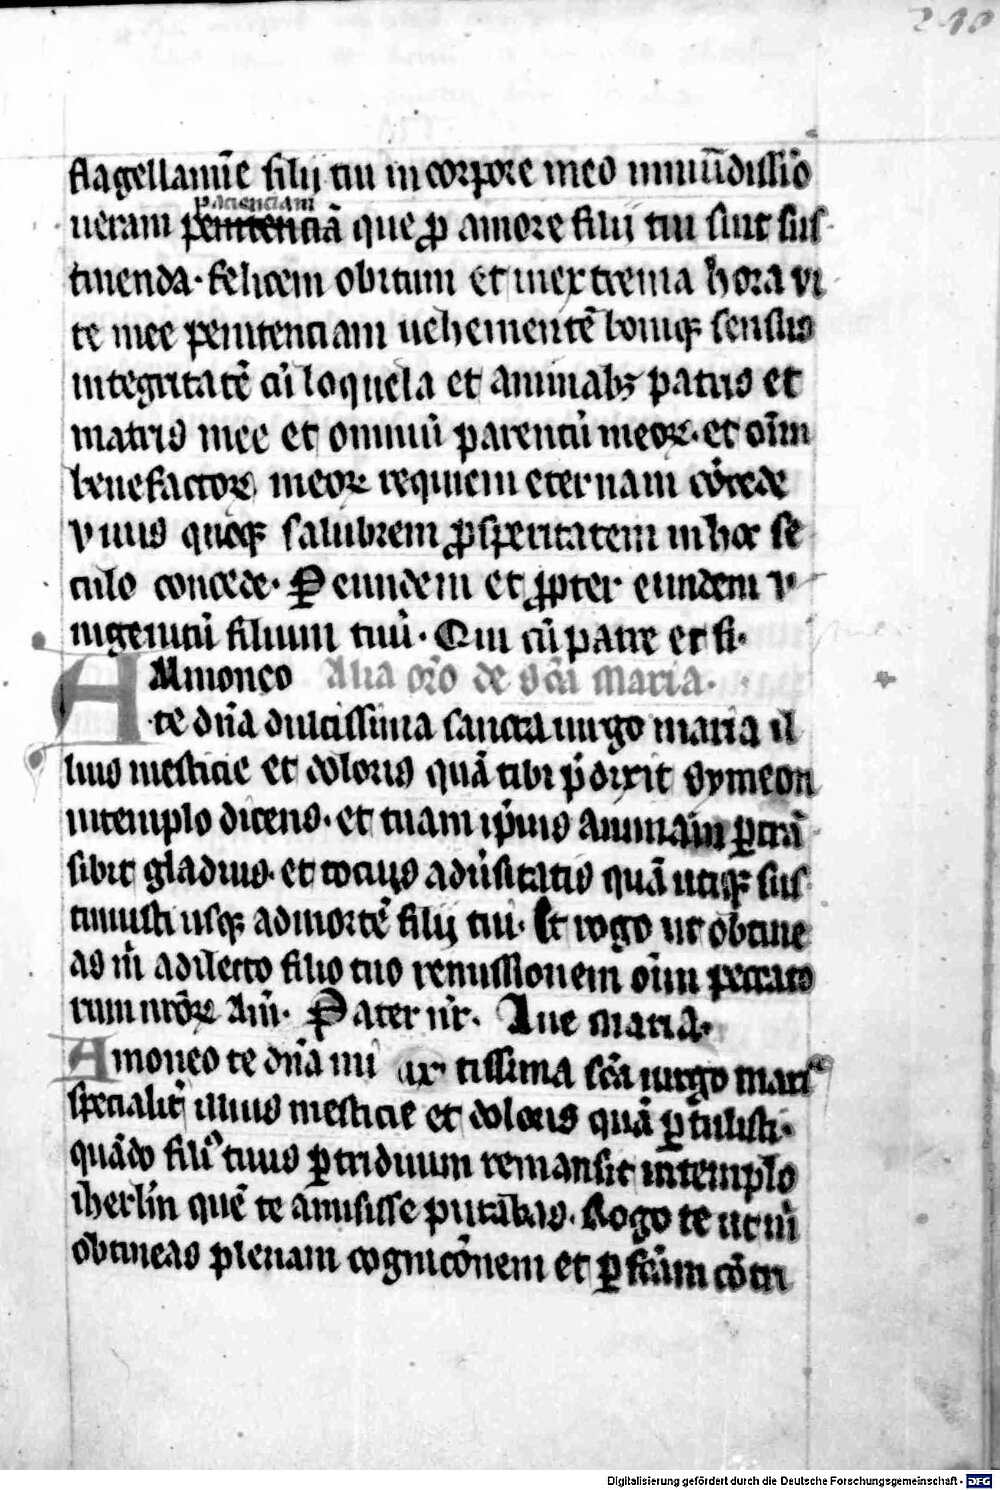 210
flagellamē filij tui in corpore meo inmūdissīo
paciencāam
ueram penitenciā que ꝓ amore filij tui sint sus
tinenda. felicem obitum et in extrema hora vi
te mee penitenciam uehementē boniqꝫ sensus
integritatē cū loquela et animabꝫ patris et
matris mee et omniū parentū meoꝝ. et oīm
benefactoꝝ meoꝝ requiem eternam cōcede
viuis quoqꝫ salubrem ꝓsperitatem in hoc se
culo concede. Per eundem et ꝓpter eundem v
nigenitū filium tuū. Qui cū patre et fi.
Ammoneo Alia orō de scā maria.
te dn̄a dulcissima sancta uirgo maria il
lius mesticie et doloris quā tibi p̄dixit symeon
in templo dicens. et tuam ip̄ius animam ꝑtrā
sibit gladius. et tocius adūsitatis quā utiqꝫ sus
tinuisti usqꝫ ad mortē filij tui. Et rogo ut obtine
as m̄ a dilecto filio tuo remissionem oīm peccato
rum nr̄oꝝ Am̄. Pater nr̄. Aue maria.
Amoneo te dn̄a mi tissima scā uirgo mari
specialit̄ illius mesticie et doloris quā ꝑtulisti.
quādo filiꝰ tuus ꝑ triduum remansit in templo
iherlm̄ quē te amisisse putabas. Rogo te ut m̄
obtineas plenam cognicōnem et ꝑfcām cōtri
Digitalisierung gefördert durch die Deutsche Forschungsgemeinschaft - DFG